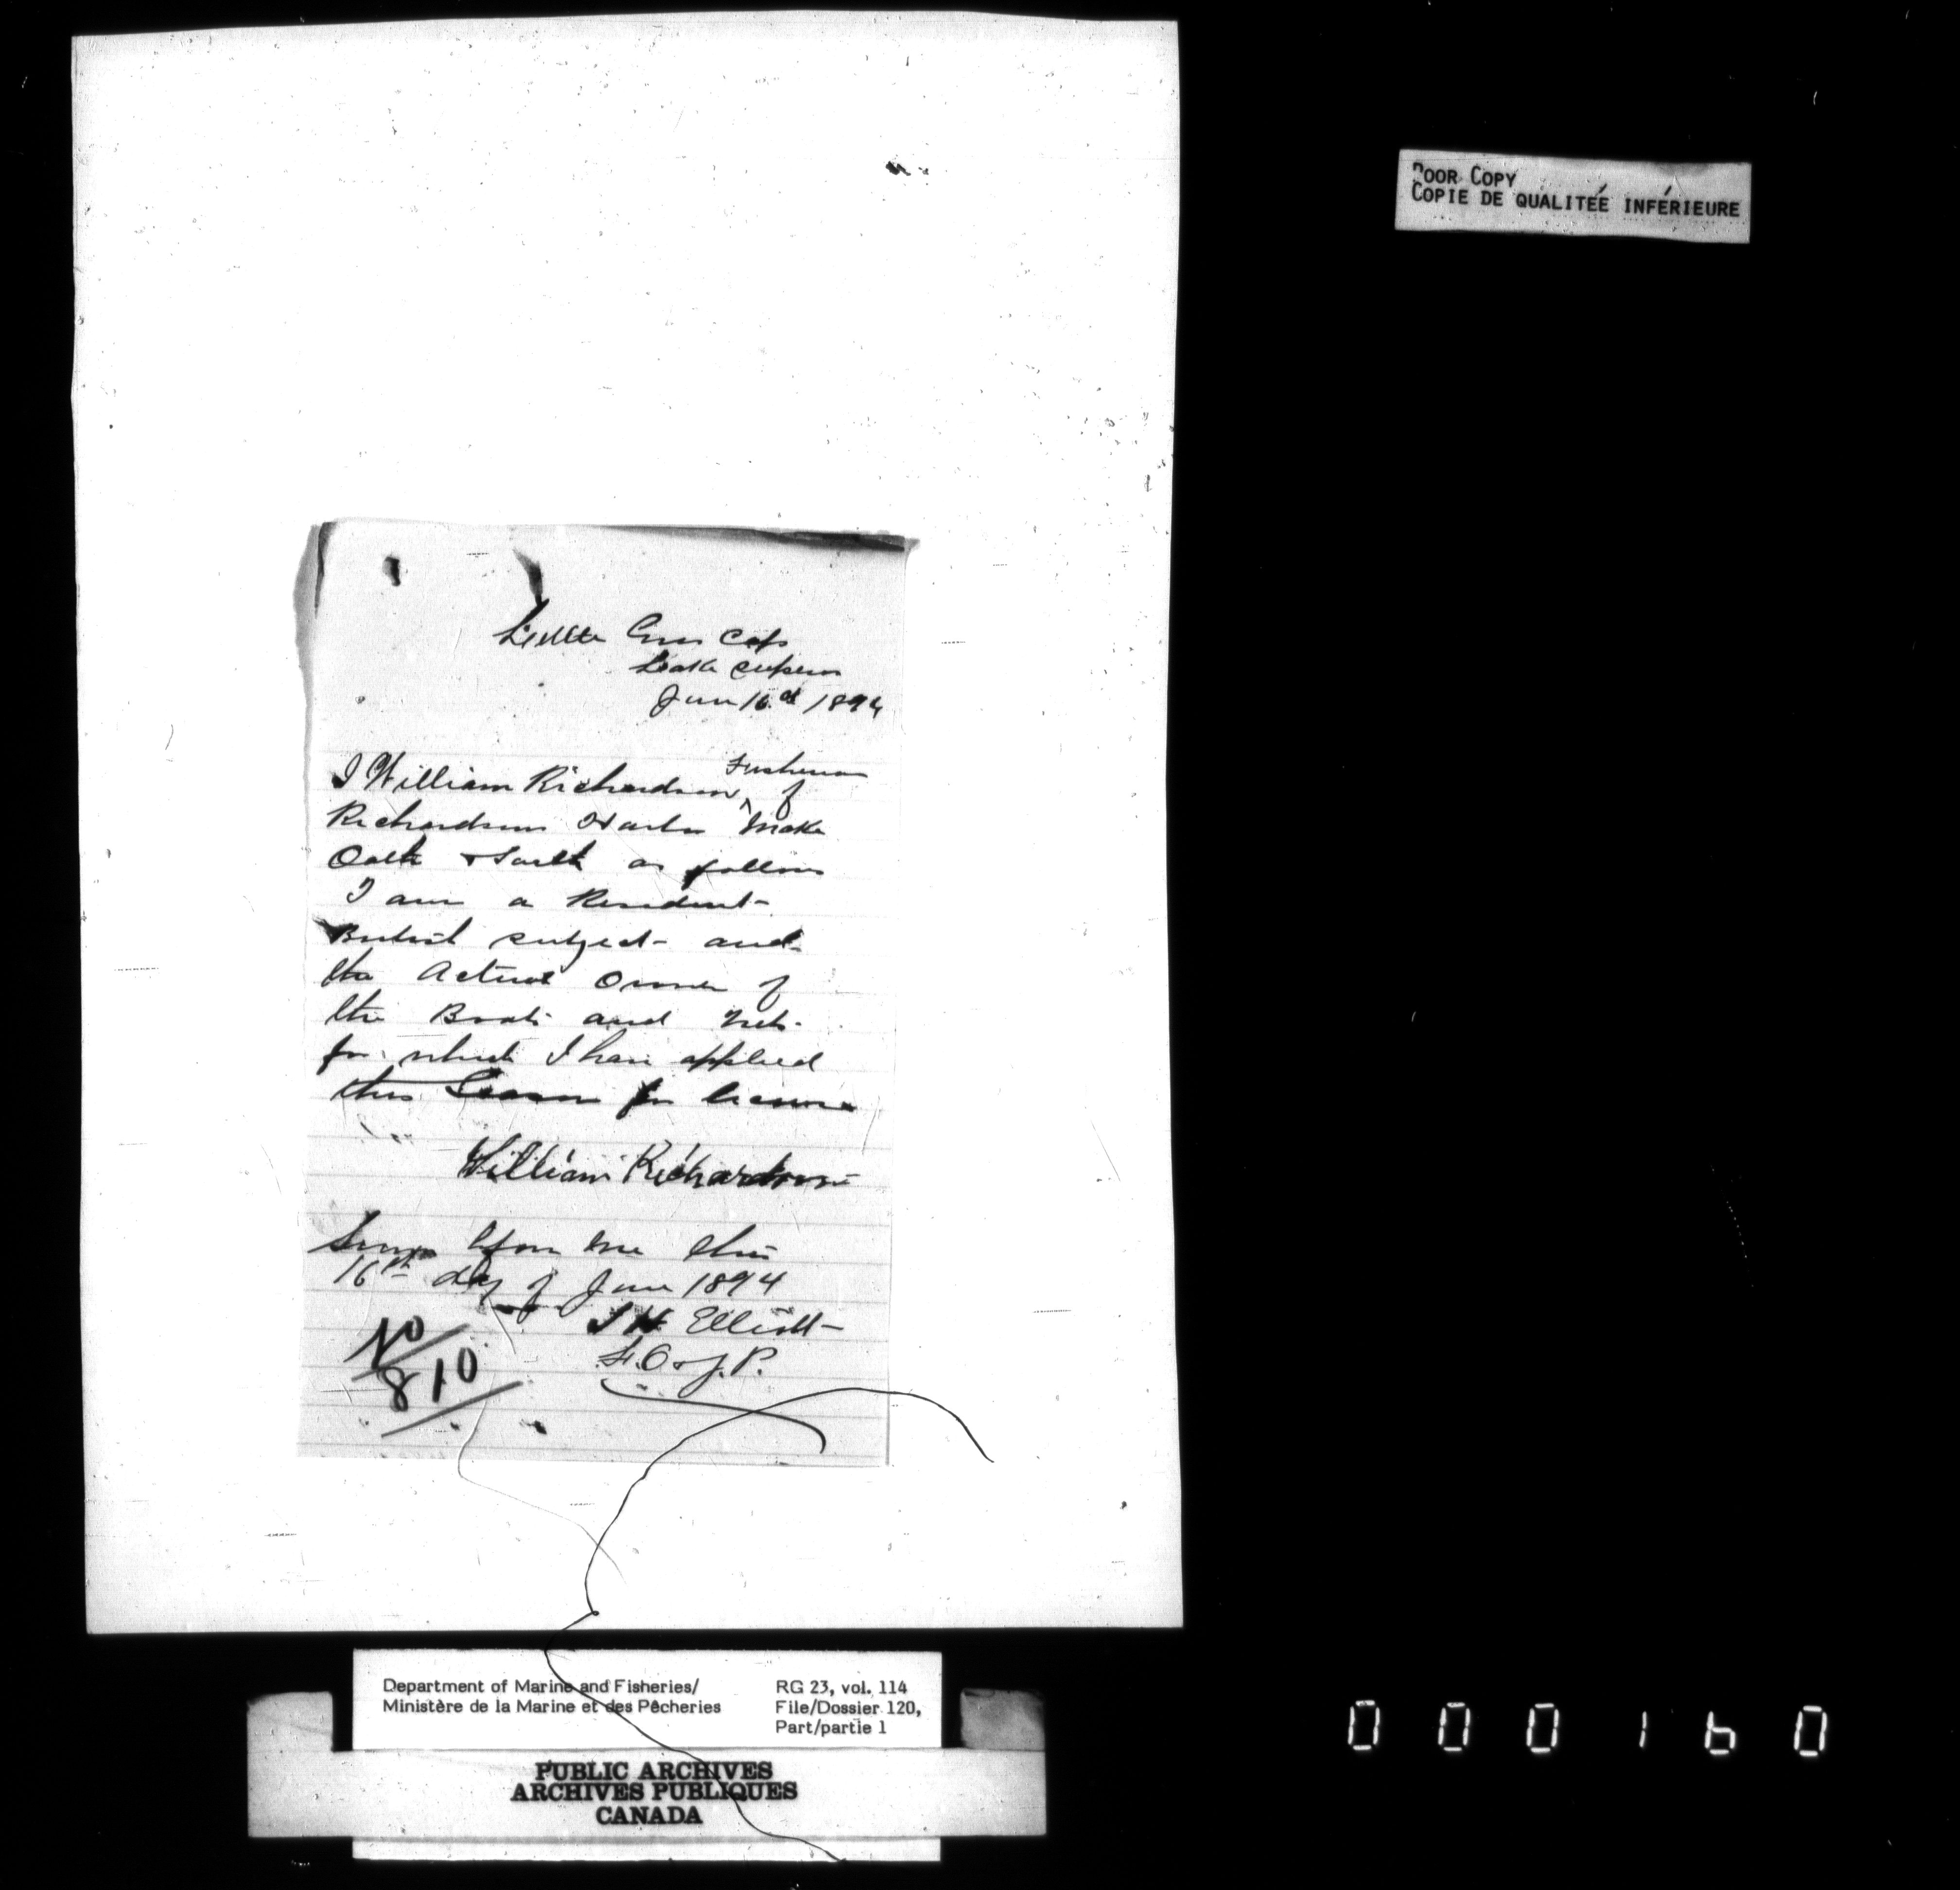 POOR COPY
COPIE DE QUALITÉE INFÉRIEURE
Little Gros Cap
Lake Superior
June 16th 1894
Fisherman
I William Richardson ^ of
Richardson Harbor Make
Oath & Saith as follows
I am a Resident
British subject and
the Actual Owner of
the Boats and Nets
for which I have applied
this Season for license
William Richardson
Sworn before me this
16th day of June 1894
Elliott
F.O. & J.P.
No
810
Department of Marine and Fisheries/
Ministère de la Marine et des Pêcheries
RG 23, vol. 114
File/Dossier 120,
Part/partie 1
PUBLIC ARCHIVES
ARCHIVES PUBLIQUES
CANADA
000160